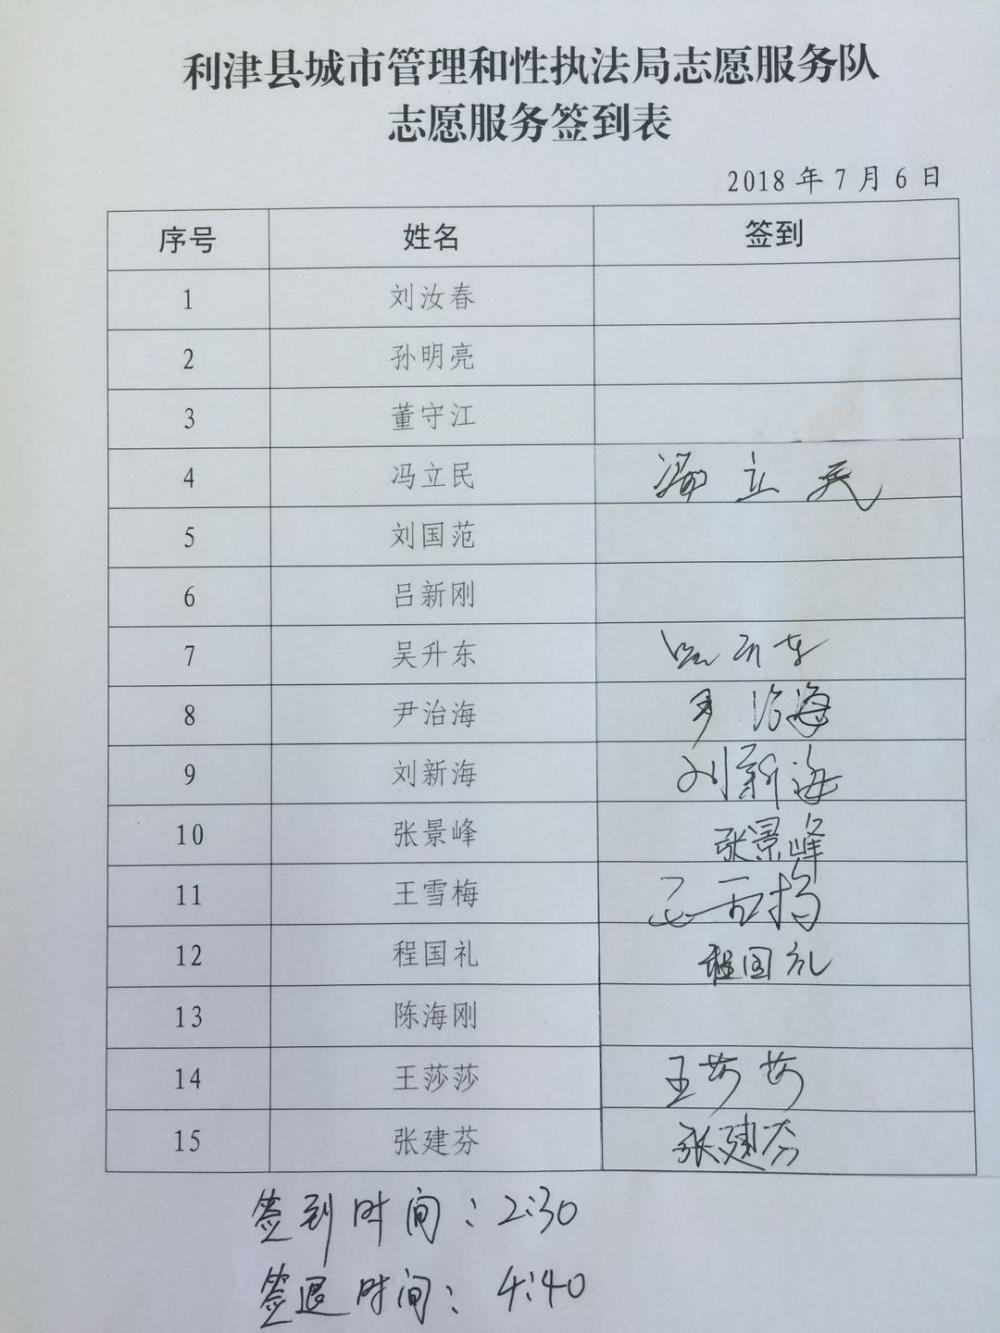 利津县城市管理和性执法局志愿服务队
志愿服务签到表
2018年7月6日
序号 姓名 签到
1 刘汝春
2 孙明亮
3 董守江
4 冯立民 冯立民
5 刘国范
6 吕新刚
7 吴升东 吴升东
8 尹治海 尹治海
9 刘新海 刘新海
10 张景峰 张景峰
11 王雪梅 王雪梅
12 程国礼 程国礼
13 陈海刚
14 王莎莎 王莎莎
15 张建芬 张建芬
签到时间：2:30
签退时间：4:40